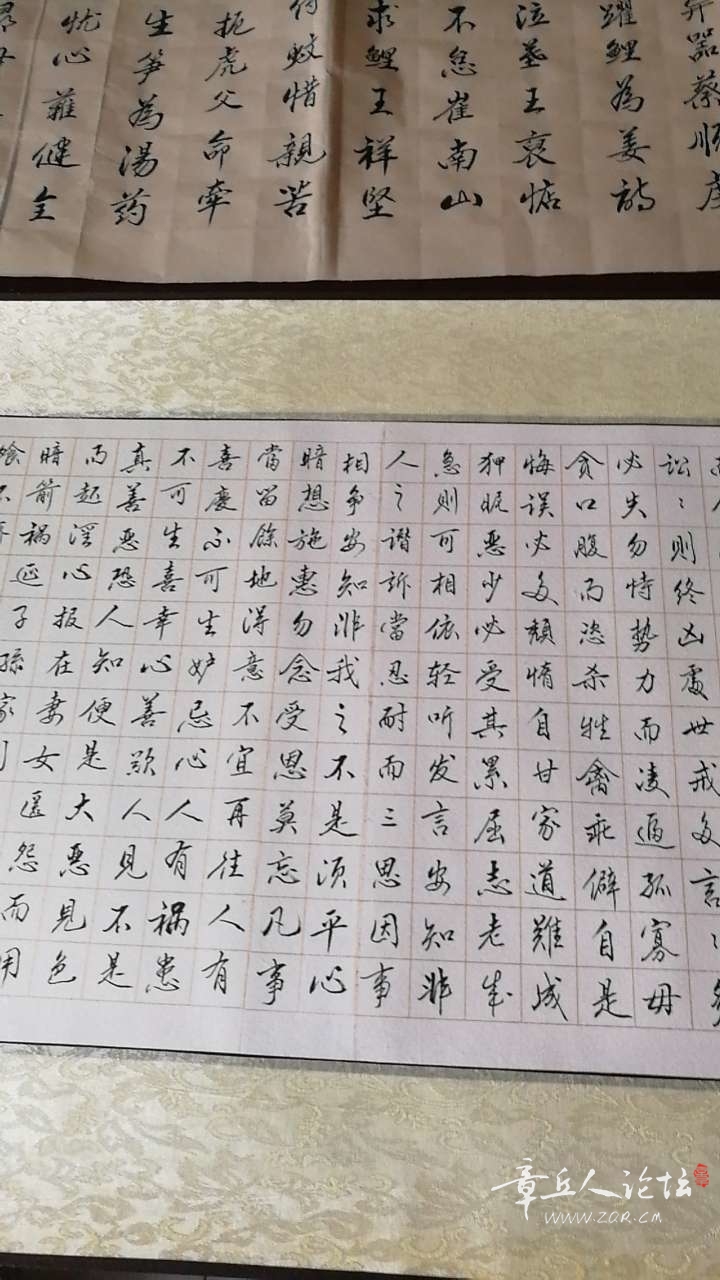 器蔡順
躍鯉為姜詩
泣墓王裒惦
不怠崔南山
求鯉王祥堅
蚊惜親苦
扼虎父命牽
生笋為湯药
忧心難健全
訟〻則終凶處世戒多言〻多
必失勿恃勢力而凌逼孤寡毋
貪口腹而恣杀牲禽乖僻自是
悔误必多颓惰自甘家道難成
狎昵恶少必受其累屈志老成
急則可相依轻听发言安知非
人之譖訴當忍耐而三思因事
相争安知非我之不是须平心
暗想施惠勿念受恩莫忘凡事
當留餘地得意不宜再往人有
喜慶不可生妒忌心人有祸患
不可生喜幸心善歆人見不是
真善恶恐人知便是大恶見色
而起淫心报在妻女匿怨而用
暗箭祸延子孫家
章丘人论坛
www.ZQR.CM